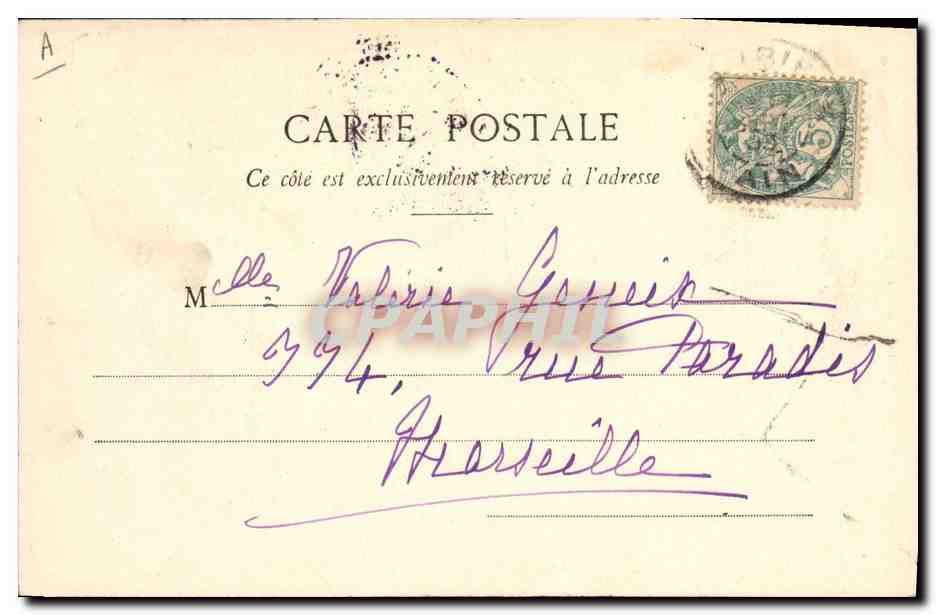 A
CARTE POSTALE
Ce côté est exclusivement réservé à l'adresse
5
POSTES
AIN
Mlle Valérie
CPAPHIL
374, rue Paradis
Marseille